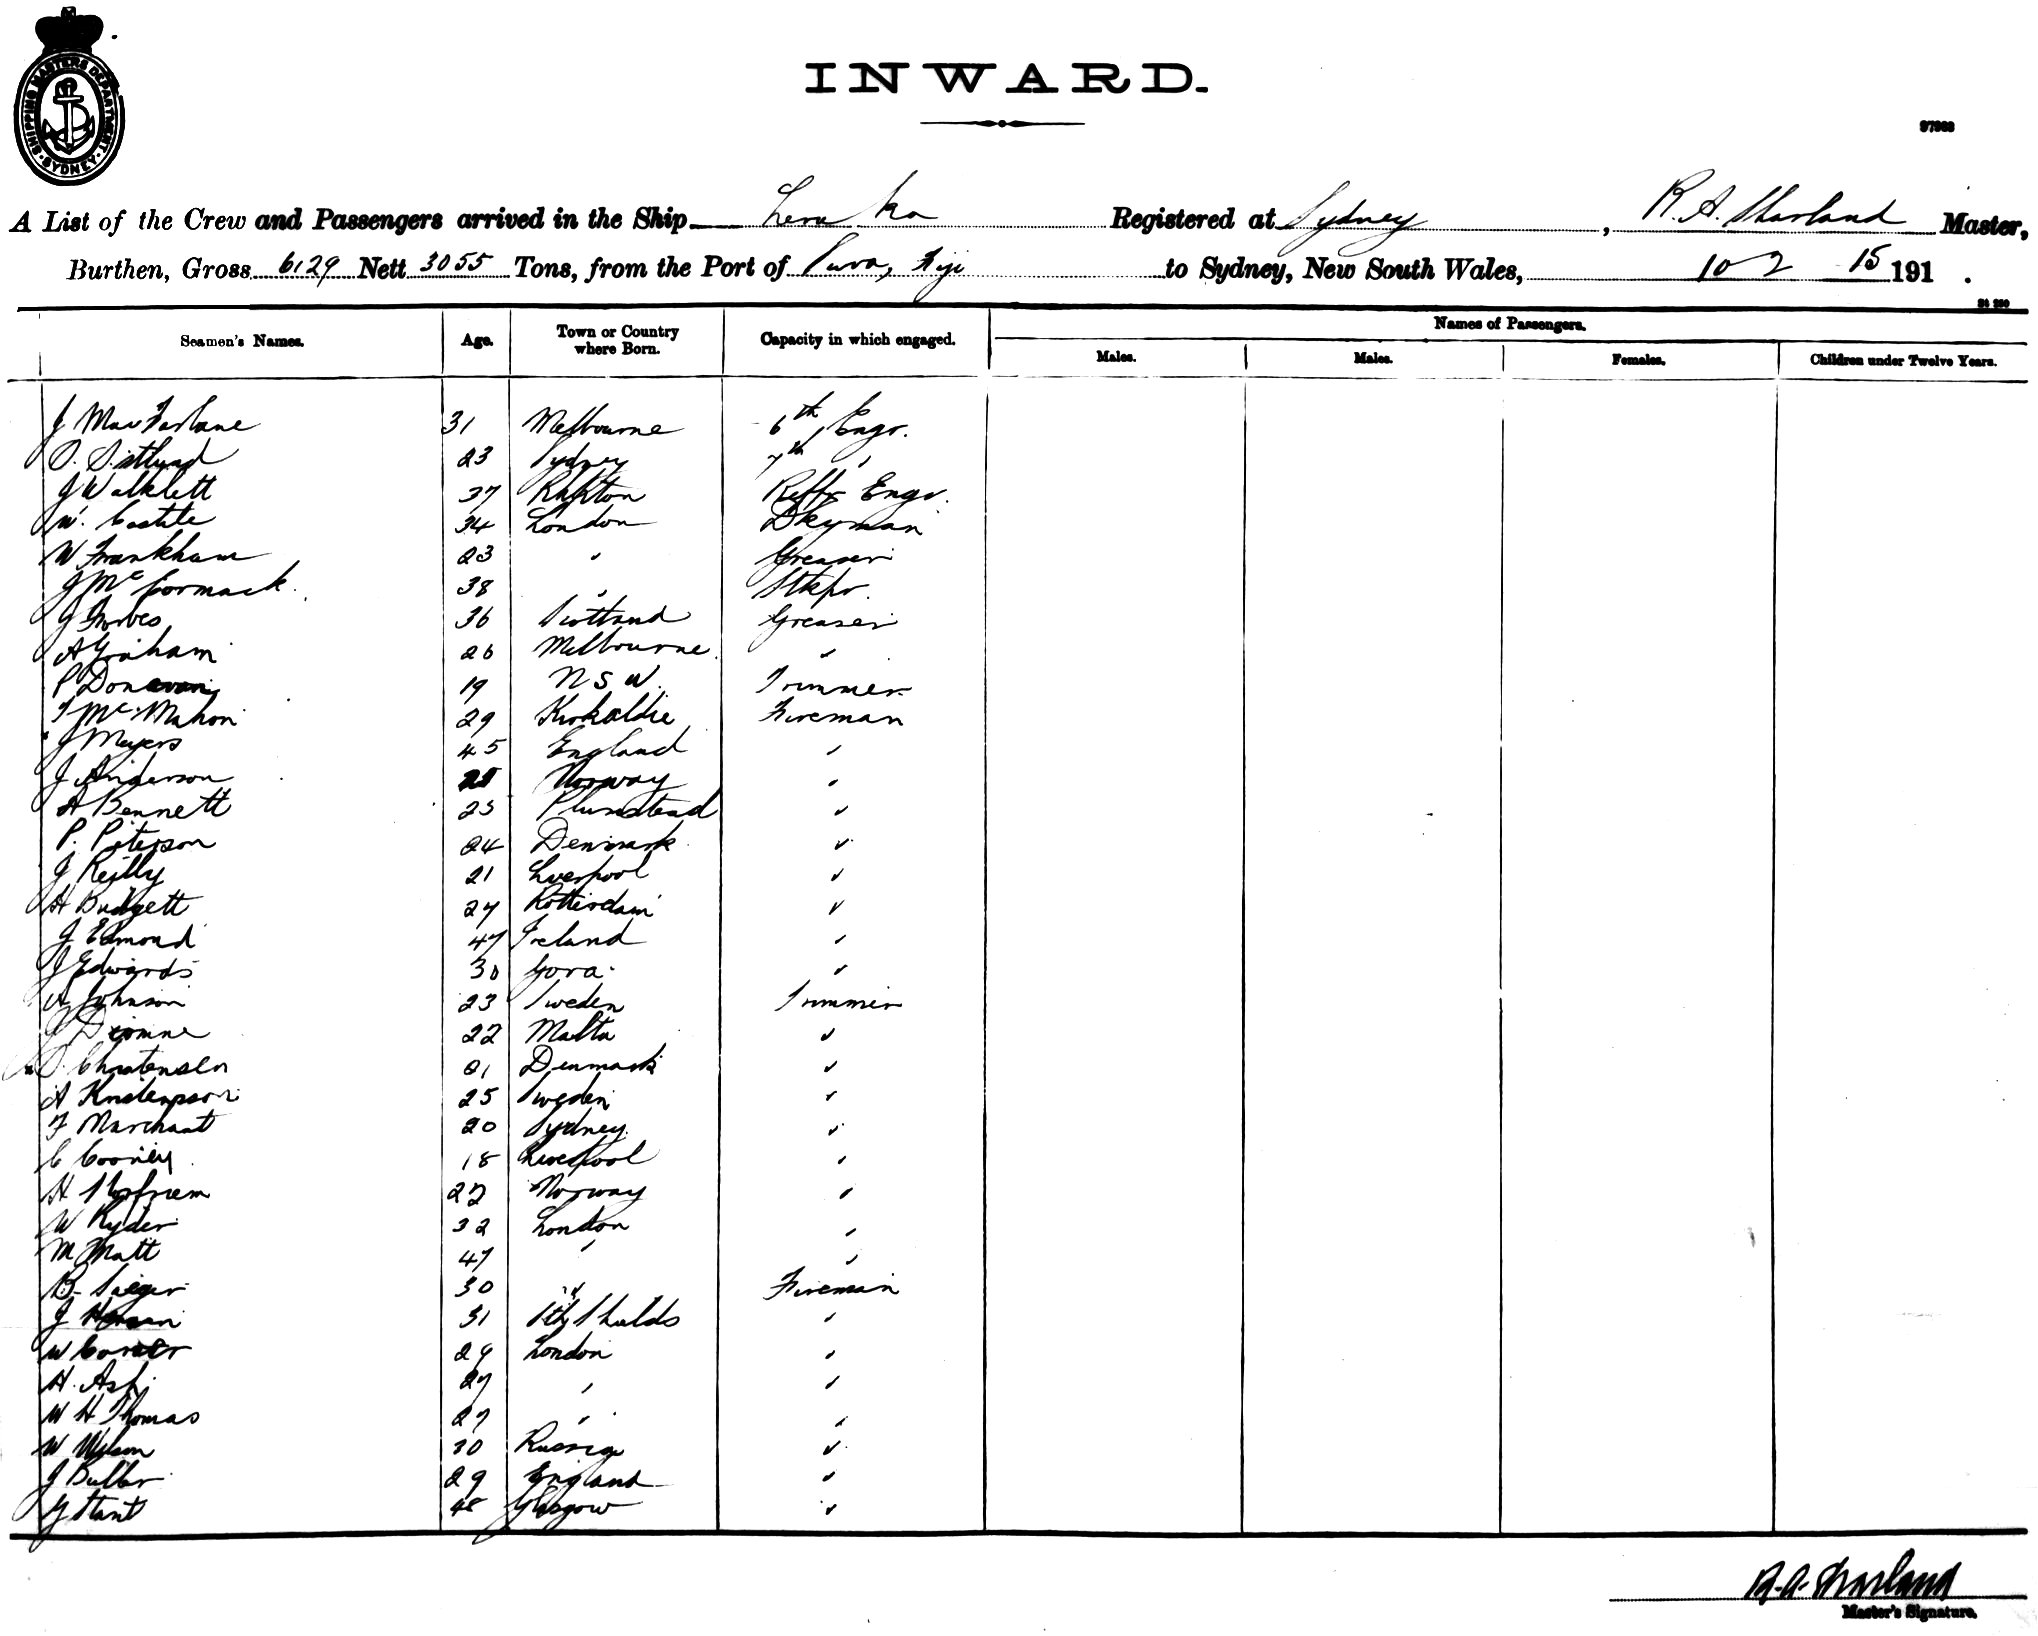 SHIPPING MASTERS DEPARTMENT. SYDNEY
INWARD.
97963
A List of the Crew and Passengers arrived in the Ship Levuka Registered at Sydney, R. A. Sharland Master,
Burthen, Gross 6129 Nett 3055 Tons, from the Port of Suva, Fiji to Sydney, New South Wales, 10 2 15 191 .
Seamen's Names. Age. Town or Country where Born. Capacity in which engaged. Names of Passengers.
Males. Males. Females. Children under Twelve Years.
J MacFarlane 31 Melbourne 6th Engr.
O. 23 Sydney 7th "
J Walklett 37 Engr.
W. Castle 34 London Dkyman
W Frankham 23 " Greaser
J McCormack 38 " Stkpr.
J Forbes 36 Scotland Greaser
A Graham 26 Melbourne "
P Donovan 19 N S W. Trimmer
T McMahon 29 Kirkaldie Fireman
J Meyers 45 England "
J Anderson Norway "
A Bennett 23 Plumstead "
P. Peterson 24 Denmark "
J Reilly 21 Liverpool "
H Budgett 27 Rotterdam "
J Edmond 47 Ireland "
J Edwards 30 "
A Johnson 23 Sweden Trimmer
J 22 Malta "
Christensen 21 Denmark "
A 25 Sweden "
F Marchant 20 Sydney "
C Cooney 18 Liverpool "
H 22 Norway "
W Ryder 32 London "
M Matt 47 " "
B. Saeger 30 " Fireman
J 31 Sth Shields "
W 29 London "
H. Ash 27 " "
W H Thomas 27 " "
W Wilson 30 Russia "
J Butler 29 England "
G Hant 48 Glasgow "
R. A. Sharland
Master's Signature.